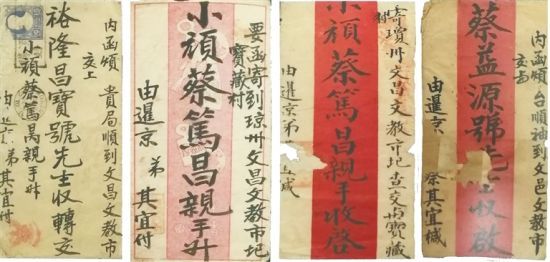 内函煩 貴局順到文昌文教市
交上
裕隆昌寶號先生收轉交
小頑蔡篤昌親手升
由 弟 其宜付
要函寄到琼州文昌文教市圯
寶藏村
小頑蔡篤昌親手升
由暹京 弟 其宜付
寄瓊州文昌文教市圯查交 寶藏
小頑蔡篤昌親手收啓
由暹京弟
内函煩 台順袖到文邑文教市
交与
蔡益源號先生收啟
由暹京 蔡其宜槭